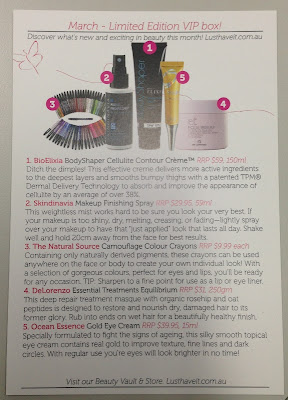 March - Limited Edition VIP box!
Discover what's new and exciting in beauty this month! Lusthaveit.com.au
1
2
5
3
4
1. BioElixia BodyShaper Cellulite Contour Crème™ RRP $59, 150ml
Ditch the dimples! This effective creme delivers more active ingredients
to the deepest layers and smooths bumpy thighs with a patented TPM®
Dermal Delivery Technology to absorb and improve the appearance of
cellulite by an average of over 38%.
2. Skindinavia Makeup Finishing Spray RRP $29.95, 59ml
This weightless mist works hard to be sure you look your very best. If
your makeup is too shiny, dry, melting, creasing, or fading—lightly spray
over your makeup to have that "just applied" look that lasts all day. Shake
well and hold 20cm away from the face for best results.
3. The Natural Source Camouflage Colour Crayons RRP $9.99 each
Containing only naturally derived pigments, these crayons can be used
anywhere on the face or body to create your own individual look! With
a selection of gorgeous colours, perfect for eyes and lips, you'll be ready
for any occasion. TIP: Sharpen to a fine point for use as a lip or eye liner.
4. DeLorenzo Essential Treatments Equilibrium RRP $31, 250gm
This deep repair treatment masque with organic rosehip and oat
peptides is designed to restore and nourish dry, damaged hair to its
former glory. Rub into ends on wet hair for a beautifully healthy finish.
5. Ocean Essence Gold Eye Cream RRP $39.95, 15ml
Specially formulated to fight the signs of ageing, this silky smooth topical
eye cream contains real gold to improve texture, fine lines and dark
circles. With regular use you're eyes will look brighter in no time!
Visit our Beauty Vault & Store. Lusthaveit.com.au